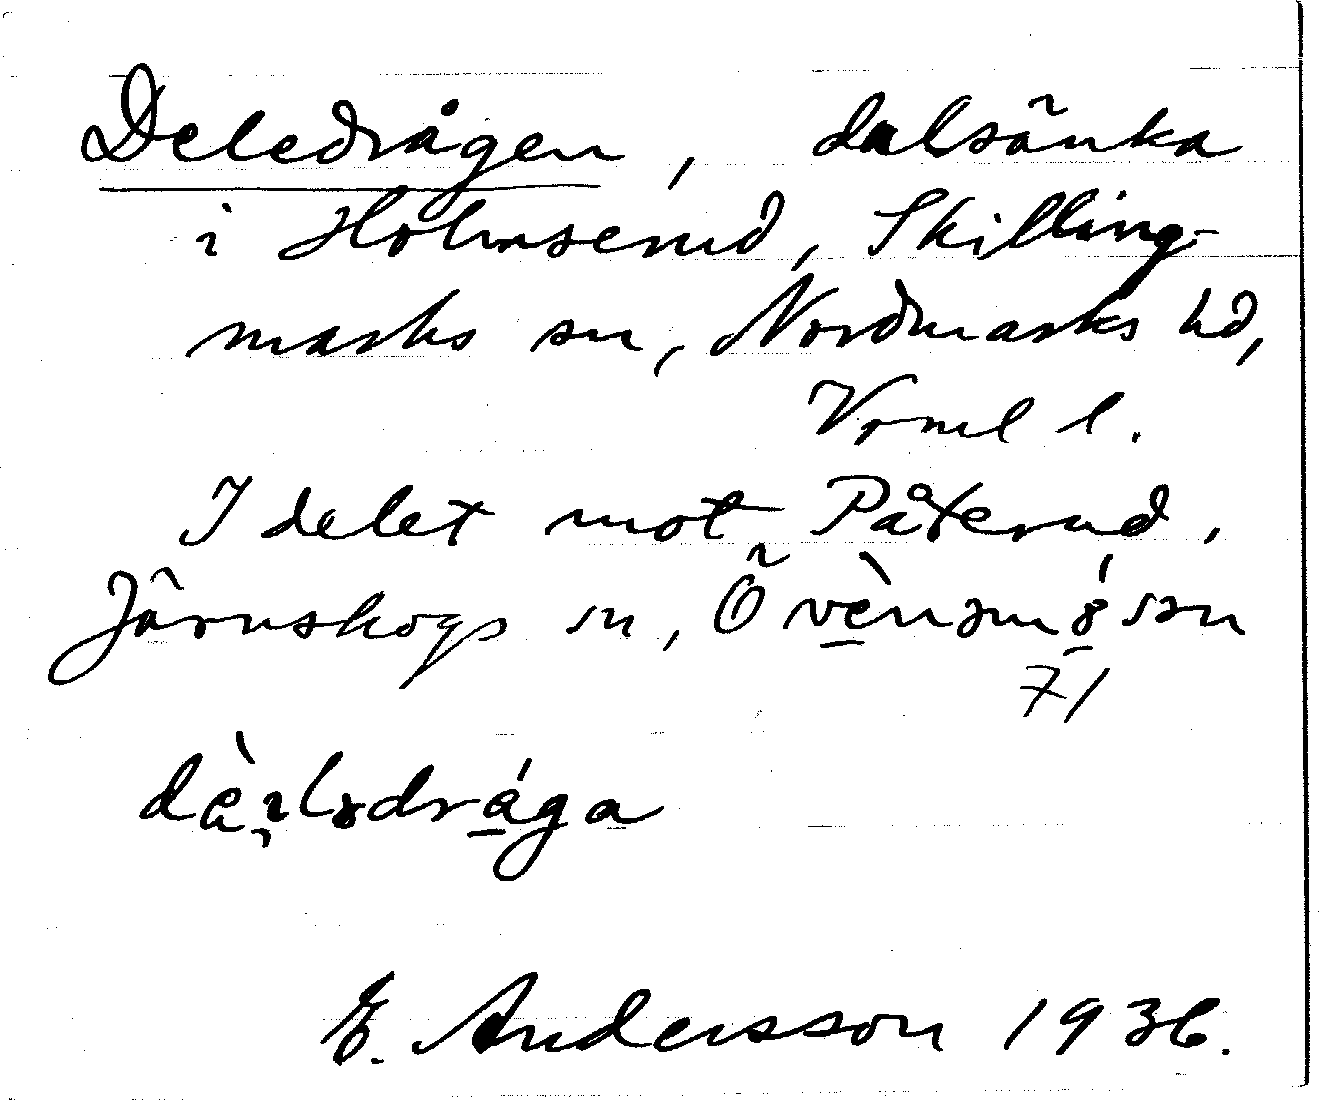 Deledrågen, dalsänka
i Holmserud, Skilling-
marks sn, Nordmarks hd,
Vrml l.
I delet mot Påterud,
Järnskogs sn, Ö
71
E. Andersson 1936.